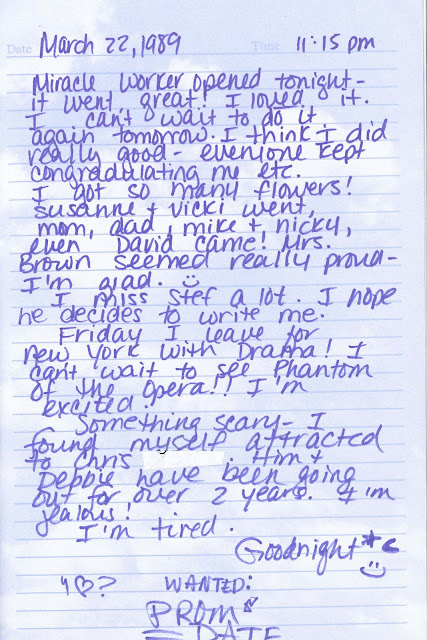 Date March 22, 1989 Time 11:15 pm
Miracle Worker opened tonight-
it went great! I loved it.
I can't wait to do it
again tomorrow. I think I did
really good- everyone kept
congradulating me etc.
I got so many flowers!
Susanne + Vicki went,
mom, dad, mike + nicky,
even David came! Mrs.
Brown seemed really proud-
I'm glad.
I miss Stef a lot. I hope
he decides to write me.
Friday I leave for
New York with Drama! I
can't wait to see Phantom
Of the Opera!! I'm
excited!
Something scary- I
found myself attracted
to Chris . Him +
Debbie have been going
out for over 2 years. I'm
jealous!
I'm tired.
Goodnight
?
WANTED:
PROM
DATE